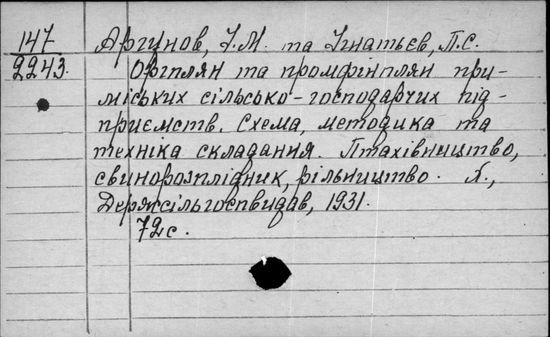 147
2243.
Аргунов, І.М. та Ігнатьєв, П.С.
Оргплян та промфінплян при-
міських сільсько-господарчих під-
приємств. Схема, методика та
техніка складання. Птахівництво,
свинорозплідник, рільництво. Х.,
Держсільгоспвидав, 1931.
72с.